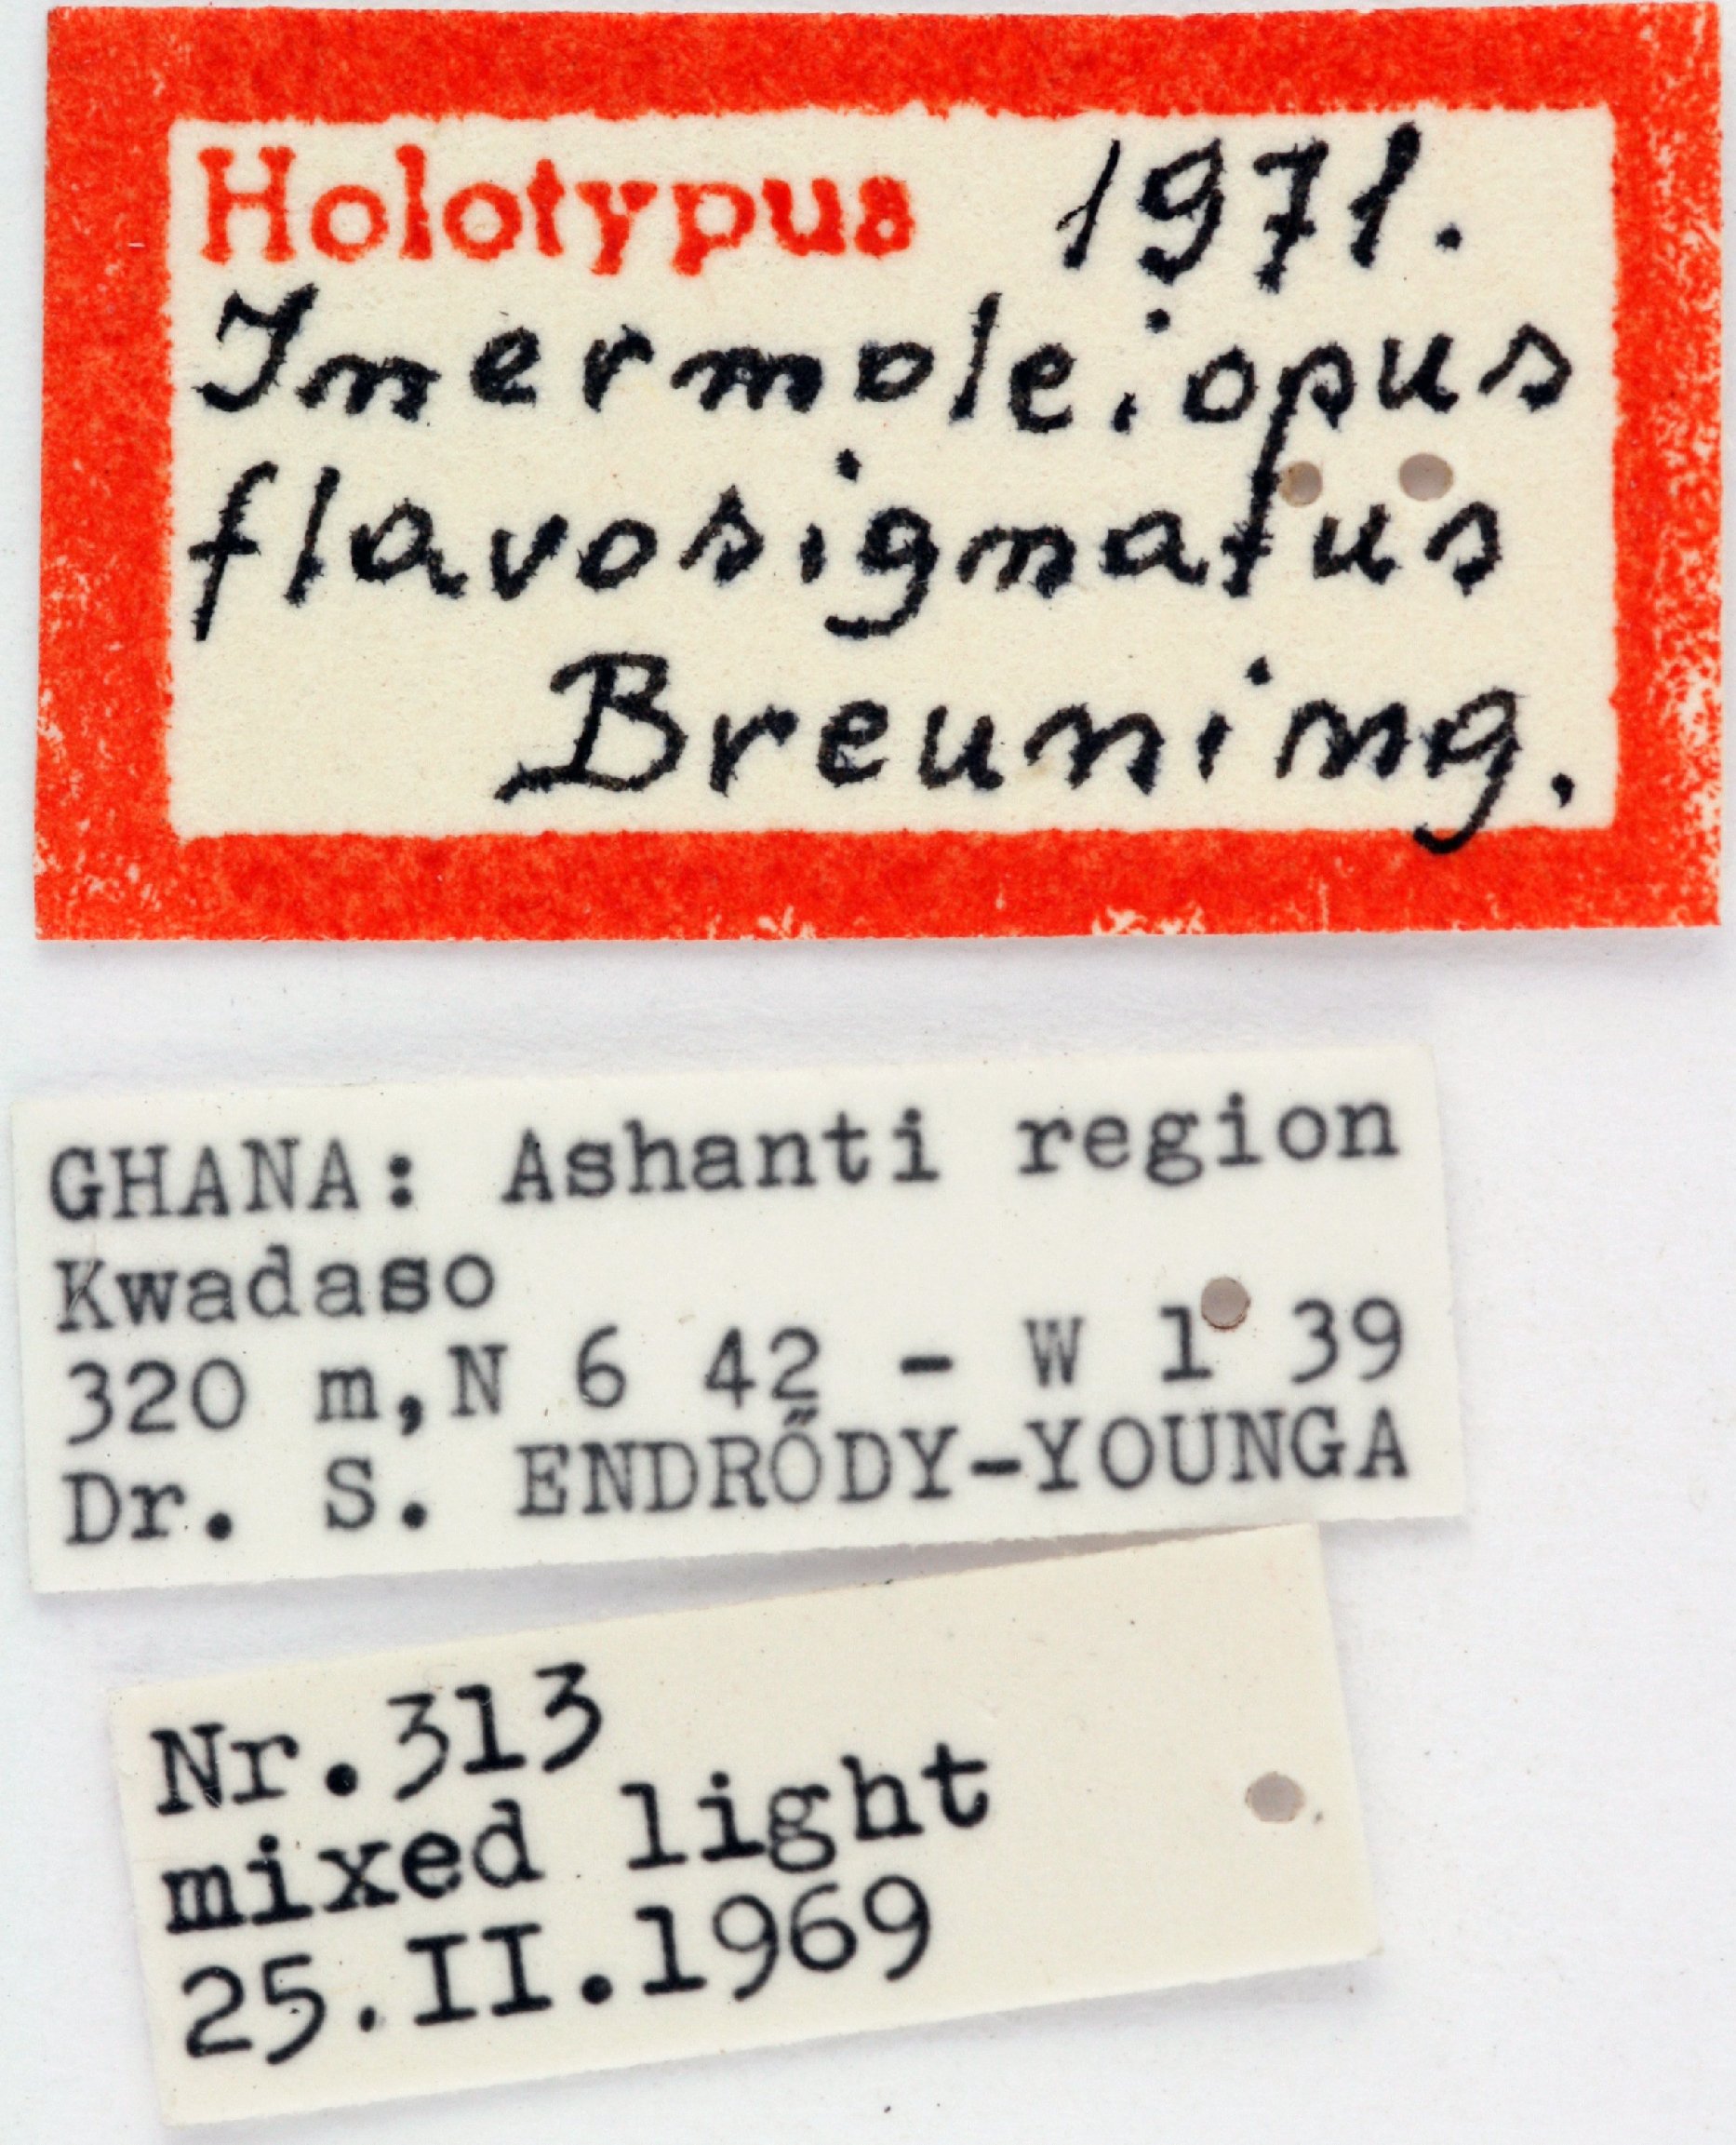 Holotypus 1971.
Inermoleiopus
flavosignatus
Breuning.
GHANA: Ashanti region
Kwadaso
320 m,N 6 42 - W 1 39
Dr. S. ENDRŐDY-YOUNGA
Nr.313
mixed light
25.II.1969